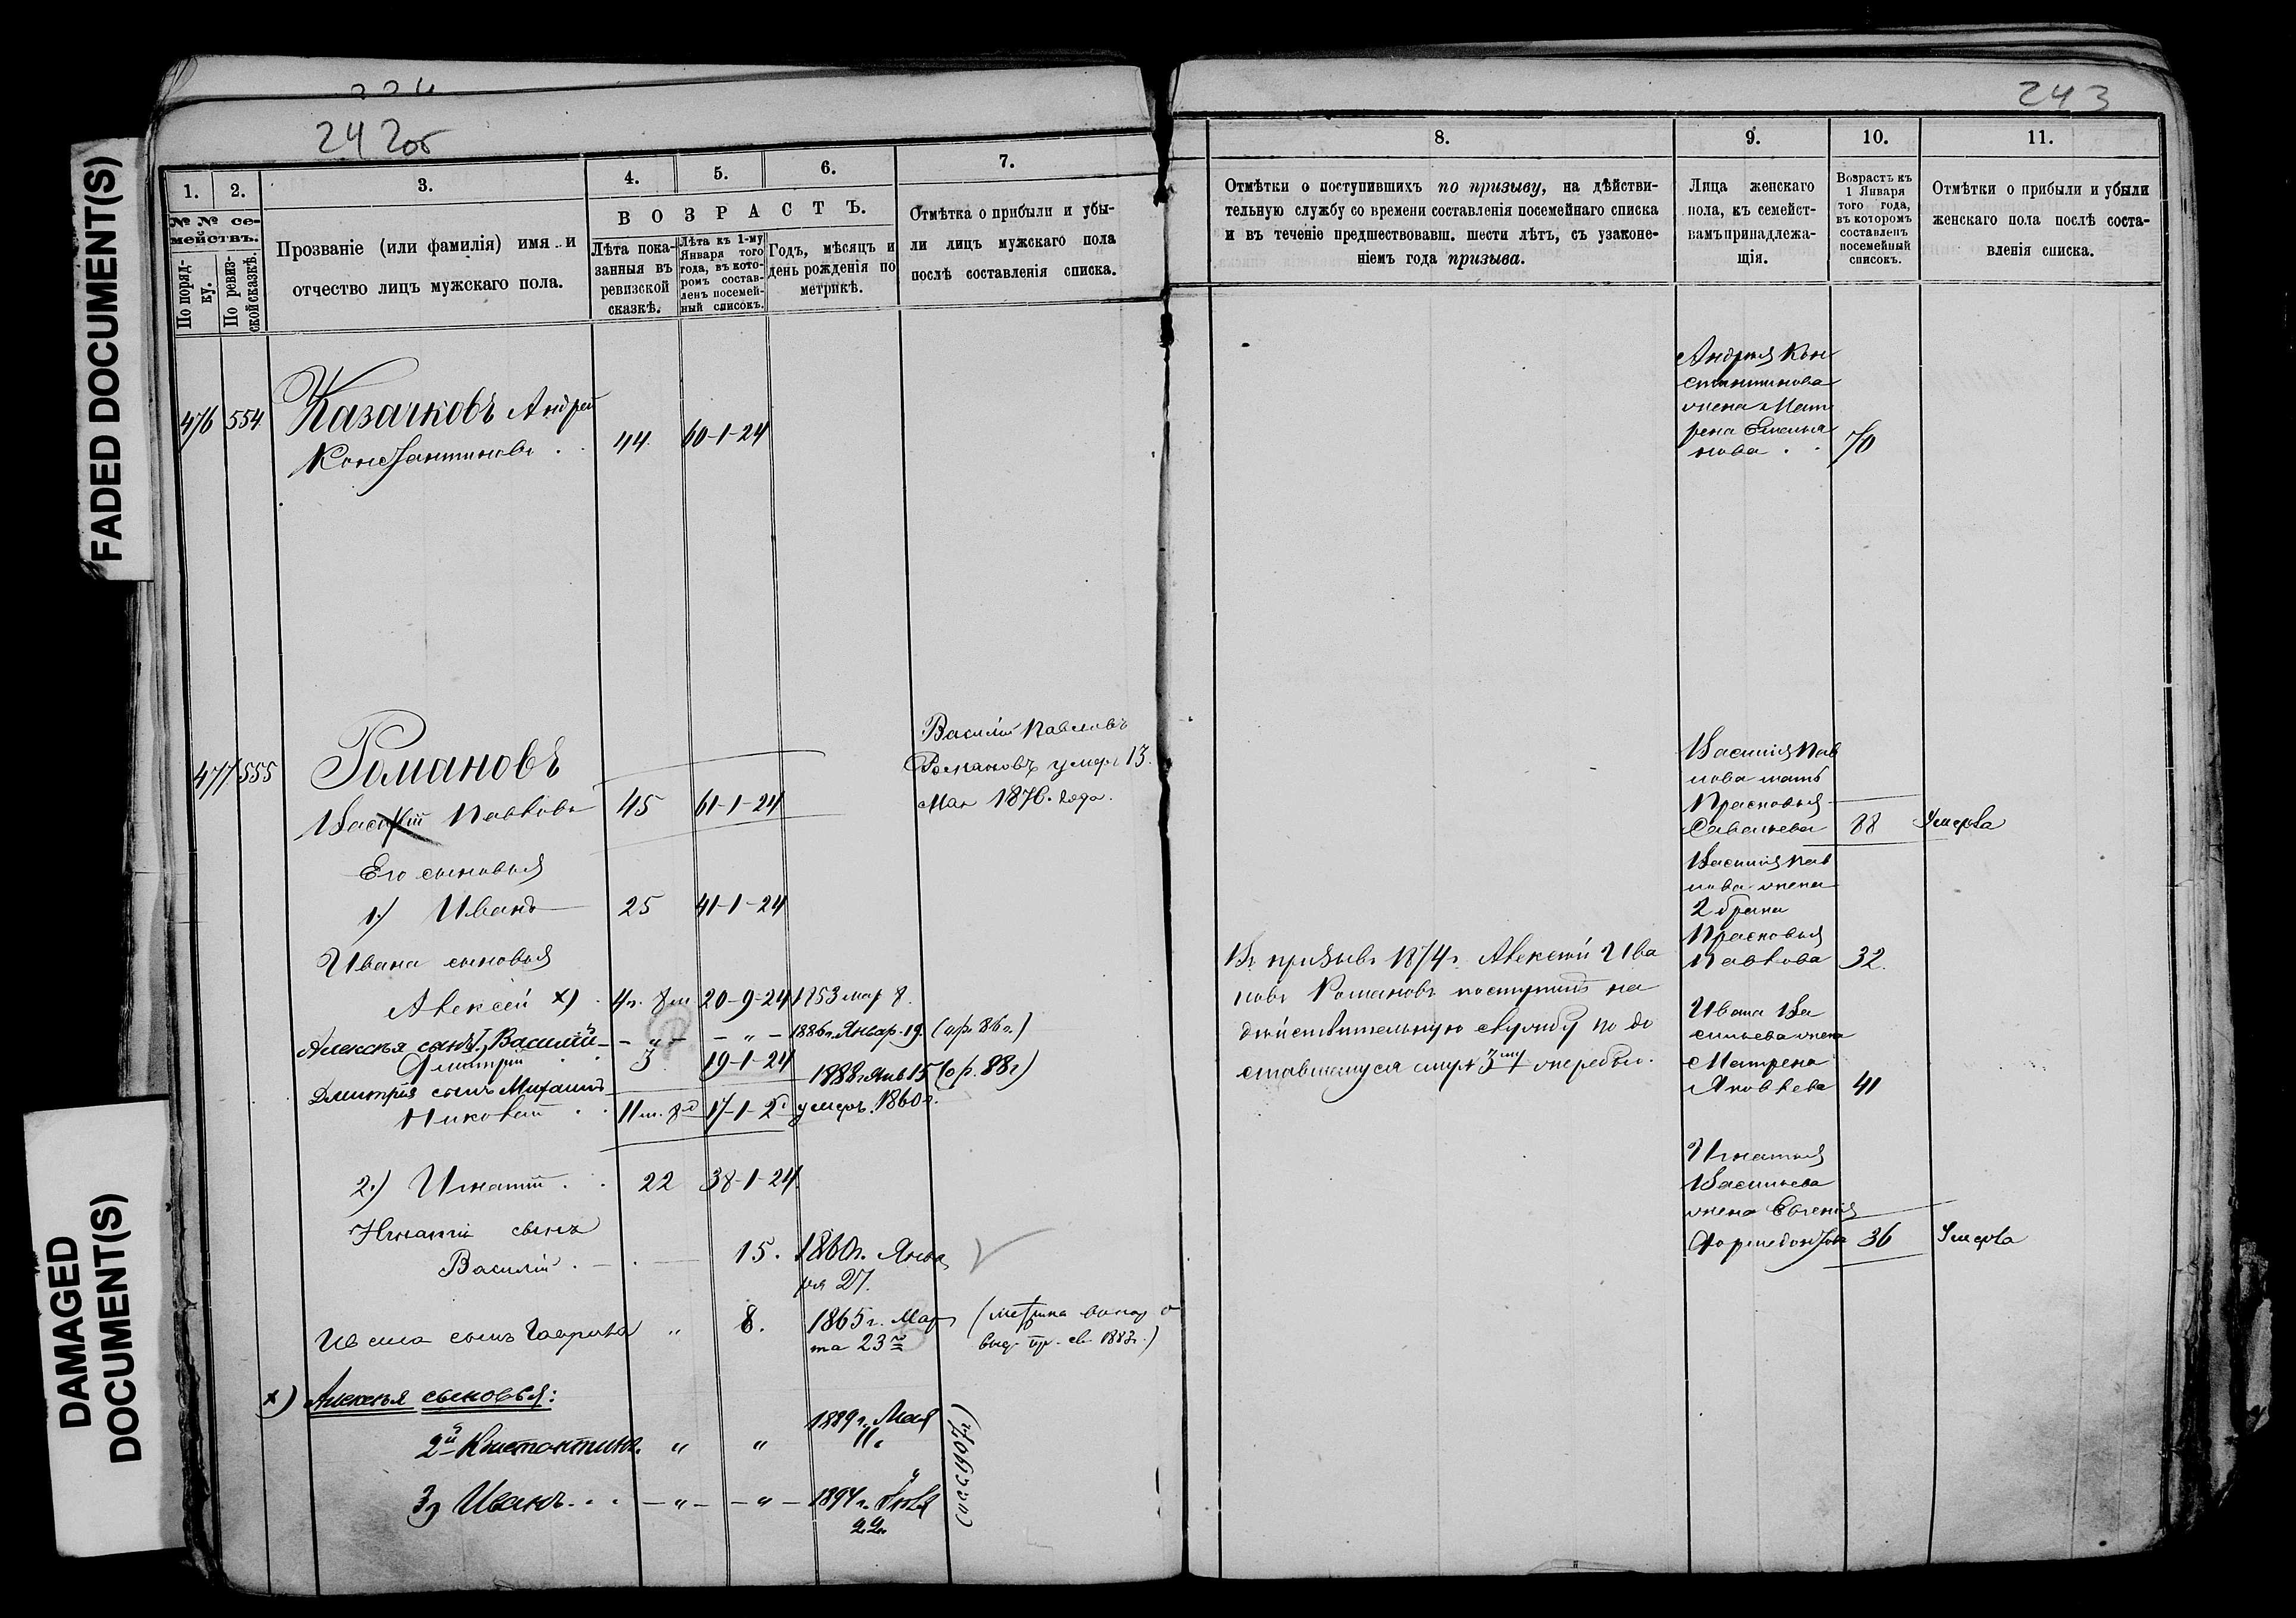 FADED DOCUMENT(S)
DAMAGED
DOCUMENT(S)
242об
1.
2.
3.
4.
5.
6.
7.
№ № се-
мействъ.
По поряд-
ку.
По ревиз-
ской сказкѣ.
Прозваніе (или фамилія) имя и
отчество лицъ мужскаго пола.
ВОЗРАСТЪ.
Лѣта пока-
занныя въ
ревизской
сказкѣ.
Лѣта къ 1-му
Января того
года, въ кото-
ромъ состав-
ленъ посемей-
ный списокъ.
Годъ, мѣсяцъ и
день рожденія по
метрикѣ.
Отмѣтка о прибыли и убы-
ли лицъ мужскаго пола
послѣ составленія списка.
476 554 Казачковъ Андрей
Константиновъ 44 60-1-24
477 555 Романовъ
Василій Павловъ 45 61-1-24
Василій Павловъ
Романовъ умеръ 13
Мая 1876 года.
Его сыновья
1.) Иванъ 25 41-1-24
Ивана сыновья
Алексей х) 4г. 8м 20-9-24 1853 мар 8.
Алексѣя сынъ 1, Василій - " - - " - 1886г. Январ. 19. (пр. 86 г.)
Дмитрій 3 19-1-24
Дмитрія сынъ Михаилъ 1888г Янв 15 (пр. 88 г)
Николай 11м. 8д 17-1-2 умеръ. 1860г.
2.) Игнатій 22 38-1-24
Игнатія сынъ
Василій 15. 1860г. Янва
ря 27.
Ивана сынъ Гаврила " 8. 1865 г. Мар
та 23го
х) Алексѣя сыновья:
2й Константинъ. " " 1889 г. Мая
11.
3й Иванъ - " - - " - 1894 г. Іюля
22
(п.с.с. 1907г)
243
8.
9.
10.
11.
Отмѣтки о поступившихъ по призыву, на дѣйстви-
тельную службу со времени составленія посемейнаго списка
и въ теченіе предшествовавш. шести лѣтъ, съ узаконе-
ніемъ года призыва.
Лица женскаго
пола, къ семейст-
вамъ принадлежа-
щія.
Возрастъ къ
1 Января
того года,
въ которомъ
составленъ
посемейный
списокъ.
Отмѣтки о прибыли и убыли
женскаго пола послѣ соста-
вленія списка.
Андрея Кон
стантинова
жена Мат
рена Емелья
нова 70
Василія Пав
лова мать
Прасковья
Савельева 88 Умерла
Василія Пав
лова жена
2 брака
Прасковья
Павлова 32.
Въ призывъ 1874 г. Алексей Ива
новъ Романовъ поступилъ на
действительную службу по до
ставшемуся ему 3му жеребью.
Ивана Ва
сильева жена
Матрена
Яковлева 41
Игнатія
Васильева
жена Евгенія
36 Умерла